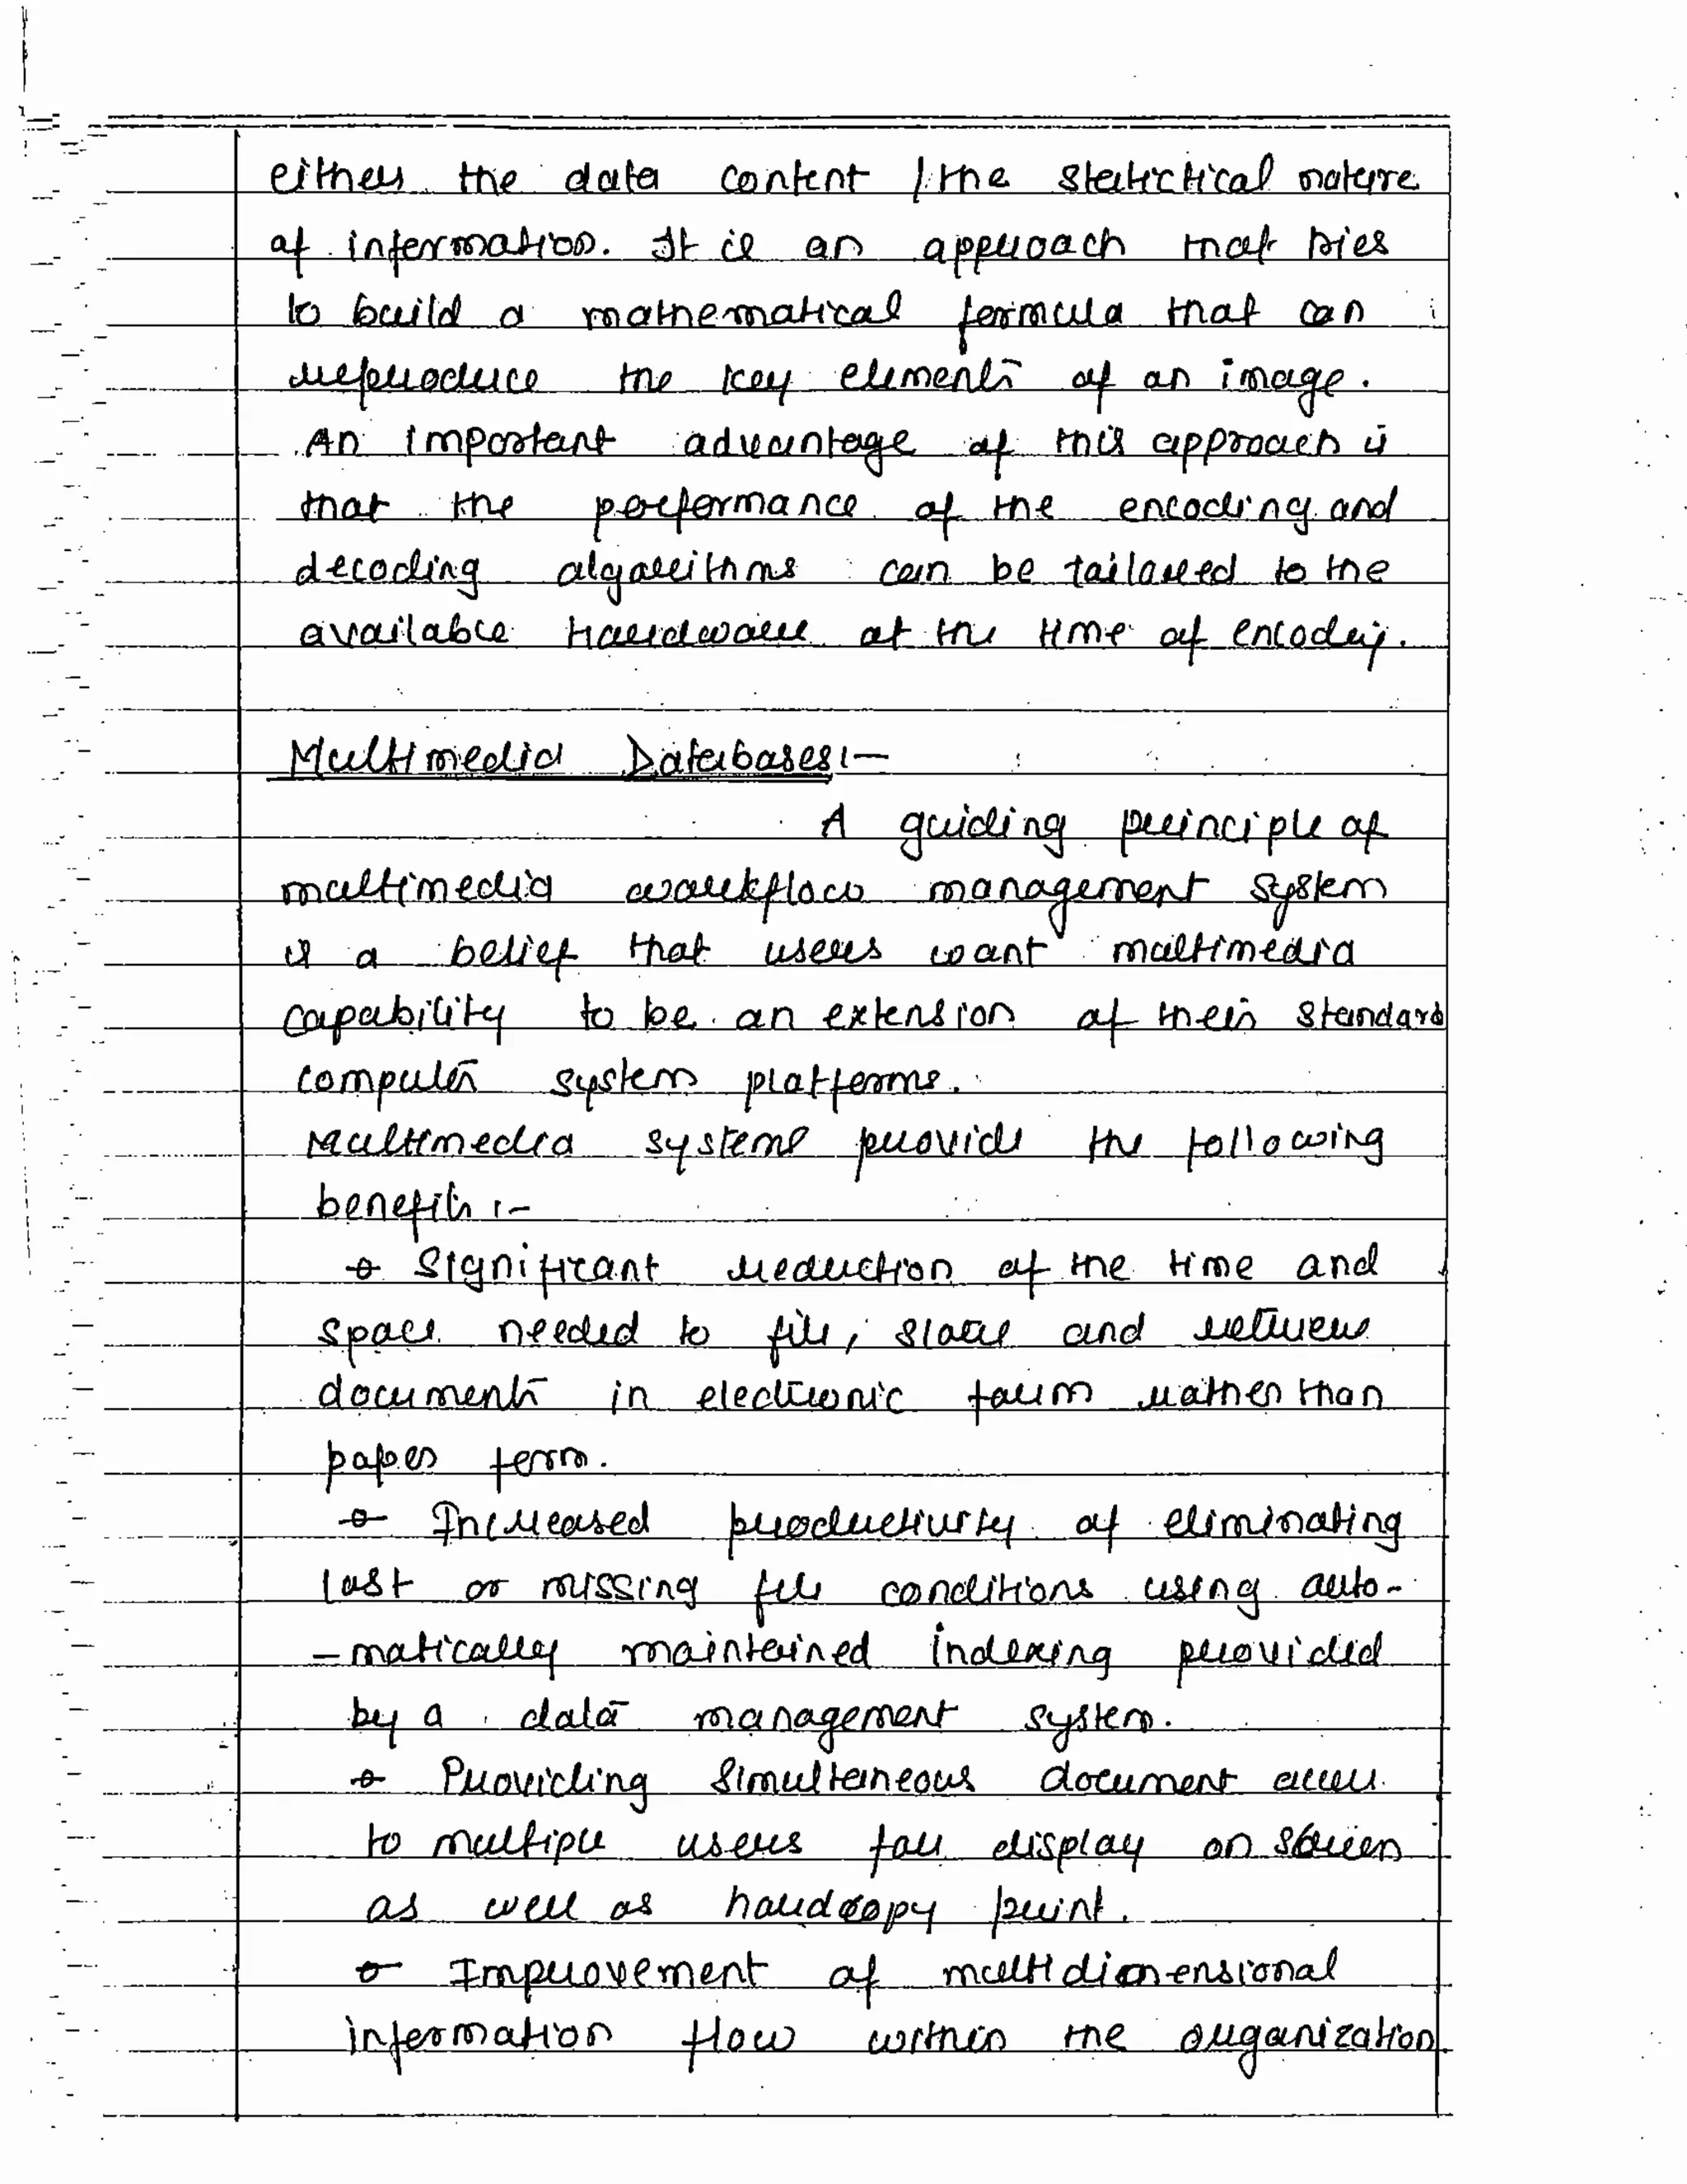 either the data content / the statictical nature
of information. It is an approach that tries
to build a mathematical formula that can
reproduce the key elements of an image.
An important advantage of this approach is
that the performance of the encoding and
decoding algorithms can be tailored to the
available Hardware at the time of encoding.
Multimedia Databases :-
A guiding principle of
multimedia workflow management system
is a belief that users want multimedia
capability to be an extension of their standard
computer system platforms.
Multimedia systems provide the following
benefits :-
Significant reduction of the time and
space needed to file, store and retrieve
documents in electronic form rather than
paper form.
Increased productivity of eliminating
lost or missing file conditions using auto-
-matically maintained indexing provided
by a data management system.
Providing Simultaneous document access
to multiple users for display on screen
as well as hardcopy print.
Improvement of multidimensional
information flow within the organization